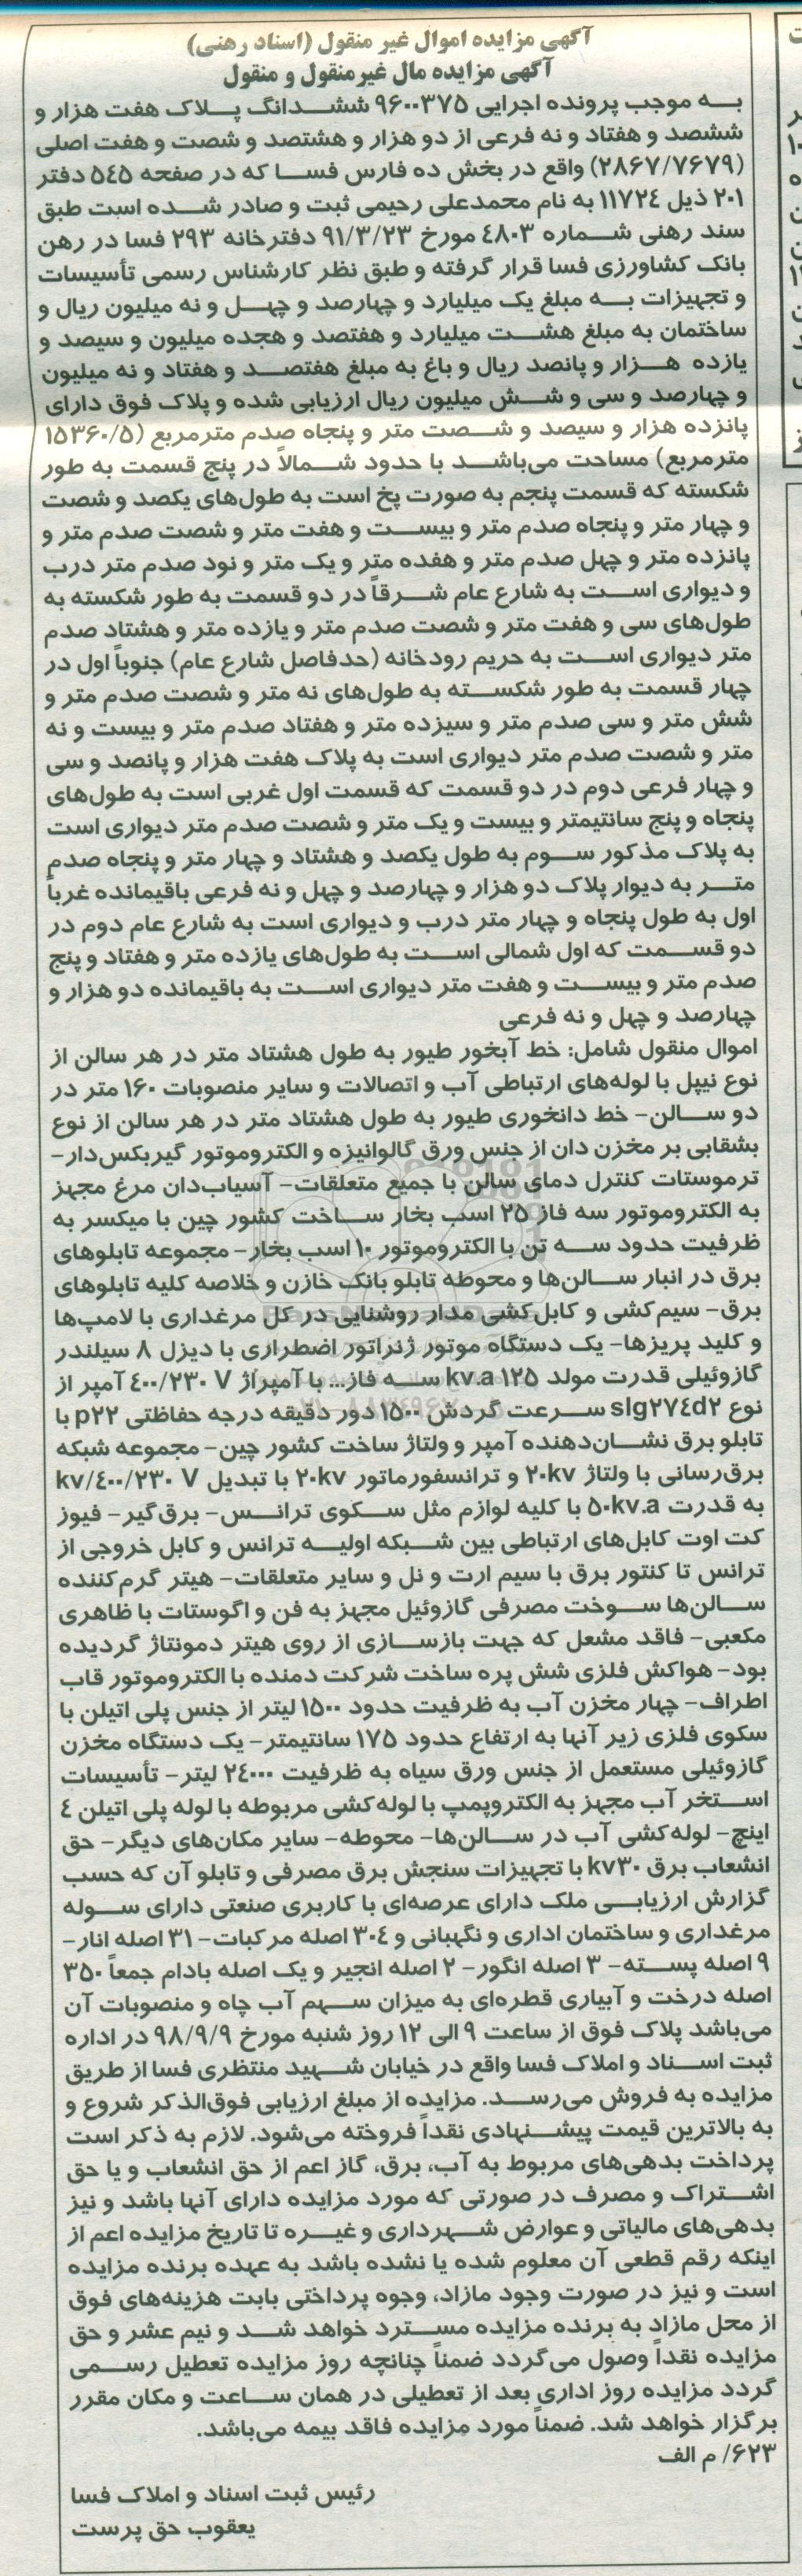 آگهی مزایده اموال غیر منقول (اسناد رهنی)
آگهی مزایده مال غیرمنقول و منقول
به موجب پرونده اجرایی ۹۶۰۰۳۷۵ ششدانگ پلاک هفت هزار و
ششصد و هفتاد و نه فرعی از دو هزار و هشتصد و شصت و هفت اصلی
(۲۸۶۷/۷۶۷۹) واقع در بخش ده فارس فسا که در صفحه ۵۴۵ دفتر
۲۰۱ ذیل ۱۱۷۲۴ به نام محمدعلی رحیمی ثبت و صادر شده است طبق
سند رهنی شماره ۴۸۰۳ مورخ ۹۱/۳/۲۳ دفترخانه ۲۹۳ فسا در رهن
بانک کشاورزی فسا قرار گرفته و طبق نظر کارشناس رسمی تأسیسات
و تجهیزات به مبلغ یک میلیارد و چهارصد و چهل و نه میلیون ریال و
ساختمان به مبلغ هشت میلیارد و هفتصد و هجده میلیون و سیصد و
یازده هزار و پانصد ریال و باغ به مبلغ هفتصد و هفتاد و نه میلیون
و چهارصد و سی و شش میلیون ریال ارزیابی شده و پلاک فوق دارای
پانزده هزار و سیصد و شصت متر و پنجاه صدم مترمربع (۱۵۳۶۰/۵
مترمربع) مساحت می‌باشد با حدود شمالاً در پنج قسمت به طور
شکسته که قسمت پنجم به صورت پخ است به طول‌های یکصد و شصت
و چهار متر و پنجاه صدم متر و بیست و هفت متر و شصت صدم متر و
پانزده متر و چهل صدم متر و هفده متر و یک متر و نود صدم متر درب
و دیواری است به شارع عام شرقاً در دو قسمت به طور شکسته به
طول‌های سی و هفت متر و شصت صدم متر و یازده متر و هشتاد صدم
متر دیواری است به حریم رودخانه (حدفاصل شارع عام) جنوباً اول در
چهار قسمت به طور شکسته به طول‌های نه متر و شصت صدم متر و
شش متر و سی صدم متر و سیزده متر و هفتاد صدم متر و بیست و نه
متر و شصت صدم متر دیواری است به پلاک هفت هزار و پانصد و سی
و چهار فرعی دوم در دو قسمت که قسمت اول غربی است به طول‌های
پنجاه و پنج سانتیمتر و بیست و یک متر و شصت صدم متر دیواری است
به پلاک مذکور سوم به طول یکصد و هشتاد و چهار متر و پنجاه صدم
متر به دیوار پلاک دو هزار و چهارصد و چهل و نه فرعی باقیمانده غرباً
اول به طول پنجاه و چهار متر درب و دیواری است به شارع عام دوم در
دو قسمت که اول شمالی است به طول‌های یازده متر و هفتاد و پنج
صدم متر و بیست و هفت متر دیواری است به باقیمانده دو هزار و
چهارصد و چهل و نه فرعی
اموال منقول شامل: خط آبخور طیور به طول هشتاد متر در هر سالن از
نوع نیپل با لوله‌های ارتباطی آب و اتصالات و سایر منصوبات ۱۶۰ متر در
دو سالن- خط دانخوری طیور به طول هشتاد متر در هر سالن از نوع
بشقابی بر مخزن دان از جنس ورق گالوانیزه و الکتروموتور گیربکس‌دار-
ترموستات کنترل دمای سالن با جمیع متعلقات- آسیاب‌دان مرغ مجهز
به الکتروموتور سه فاز ۲۵ اسب بخار ساخت کشور چین با میکسر به
ظرفیت حدود سه تن با الکتروموتور ۱۰ اسب بخار- مجموعه تابلوهای
برق در انبار سالن‌ها و محوطه تابلو بانک خازن و خلاصه کلیه تابلوهای
برق- سیم‌کشی و کابل‌کشی مدار روشنایی در کل مرغداری با لامپ‌ها
و کلید پریزها- یک دستگاه موتور ژنراتور اضطراری با دیزل ۸ سیلندر
گازوئیلی قدرت مولد ۱۲۵ kv.a سه فاز... با آمپراژ ۴۰۰/۲۳۰ V آمپر از
نوع slg۲۷۴d۲ سرعت گردش ۱۵۰۰ دور دقیقه درجه حفاظتی p۲۲ با
تابلو برق نشان‌دهنده آمپر و ولتاژ ساخت کشور چین- مجموعه شبکه
برق‌رسانی با ولتاژ ۲۰kv و ترانسفورماتور ۲۰kv با تبدیل kv/۴۰۰/۲۳۰ V
به قدرت ۵۰kv.a با کلیه لوازم مثل سکوی ترانس- برق‌گیر- فیوز
کت اوت کابل‌های ارتباطی بین شبکه اولیه ترانس و کابل خروجی از
ترانس تا کنتور برق با سیم ارت و نل و سایر متعلقات- هیتر گرم‌کننده
سالن‌ها سوخت مصرفی گازوئیل مجهز به فن و اگوستات با ظاهری
مکعبی- فاقد مشعل که جهت بازسازی از روی هیتر دمونتاژ گردیده
بود- هواکش فلزی شش پره ساخت شرکت دمنده با الکتروموتور قاب
اطراف- چهار مخزن آب به ظرفیت حدود ۱۵۰۰ لیتر از جنس پلی اتیلن با
سکوی فلزی زیر آنها به ارتفاع حدود ۱۷۵ سانتیمتر- یک دستگاه مخزن
گازوئیلی مستعمل از جنس ورق سیاه به ظرفیت ۲۴۰۰۰ لیتر- تأسیسات
استخر آب مجهز به الکتروپمپ با لوله‌کشی مربوطه با لوله پلی اتیلن ۴
اینچ- لوله‌کشی آب در سالن‌ها- محوطه- سایر مکان‌های دیگر- حق
انشعاب برق ۳۰kv با تجهیزات سنجش برق مصرفی و تابلو آن که حسب
گزارش ارزیابی ملک دارای عرصه‌ای با کاربری صنعتی دارای سوله
مرغداری و ساختمان اداری و نگهبانی و ۳۰۴ اصله مرکبات- ۳۱ اصله انار-
۹ اصله پسته- ۳ اصله انگور- ۲ اصله انجیر و یک اصله بادام جمعاً ۳۵۰
اصله درخت و آبیاری قطره‌ای به میزان سهم آب چاه و منصوبات آن
می‌باشد پلاک فوق از ساعت ۹ الی ۱۲ روز شنبه مورخ ۹۸/۹/۹ در اداره
ثبت اسناد و املاک فسا واقع در خیابان شهید منتظری فسا از طریق
مزایده به فروش می‌رسد. مزایده از مبلغ ارزیابی فوق‌الذکر شروع و
به بالاترین قیمت پیشنهادی نقداً فروخته می‌شود. لازم به ذکر است
پرداخت بدهی‌های مربوط به آب، برق، گاز اعم از حق انشعاب و یا حق
اشتراک و مصرف در صورتی که مورد مزایده دارای آنها باشد و نیز
بدهی‌های مالیاتی و عوارض شهرداری و غیره تا تاریخ مزایده اعم از
اینکه رقم قطعی آن معلوم شده یا نشده باشد به عهده برنده مزایده
است و نیز در صورت وجود مازاد، وجوه پرداختی بابت هزینه‌های فوق
از محل مازاد به برنده مزایده مسترد خواهد شد و نیم عشر و حق
مزایده نقداً وصول می‌گردد ضمناً چنانچه روز مزایده تعطیل رسمی
گردد مزایده روز اداری بعد از تعطیلی در همان ساعت و مکان مقرر
برگزار خواهد شد. ضمناً مورد مزایده فاقد بیمه می‌باشد.
۶۲۳/ م الف
رئیس ثبت اسناد و املاک فسا
یعقوب حق پرست